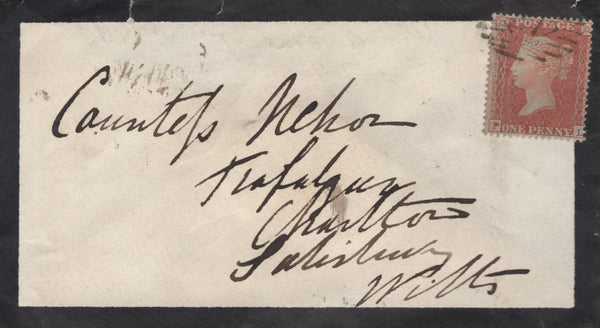 POSTAGE
ONE PENNY
Countess Nelson
Trafalgar
Charlton
Salisbury
Wilts